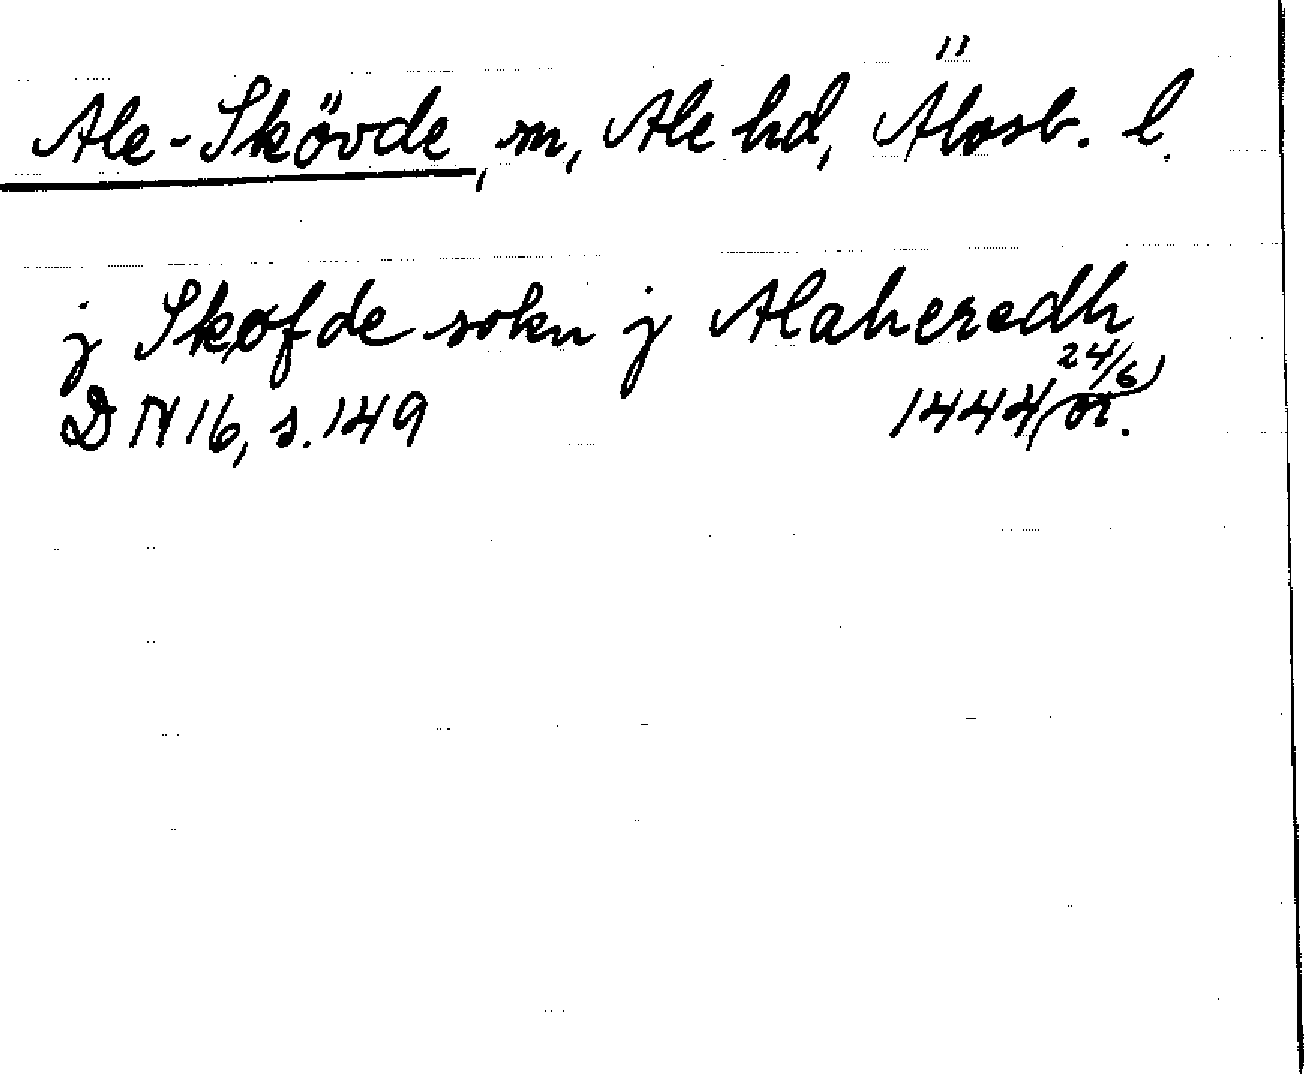 Ale-Skövde, sn, Ale hd, Älvsb. l.
j Skøfde sokn j Alaheredh
DN 16, s. 149 1444 24/6 or.